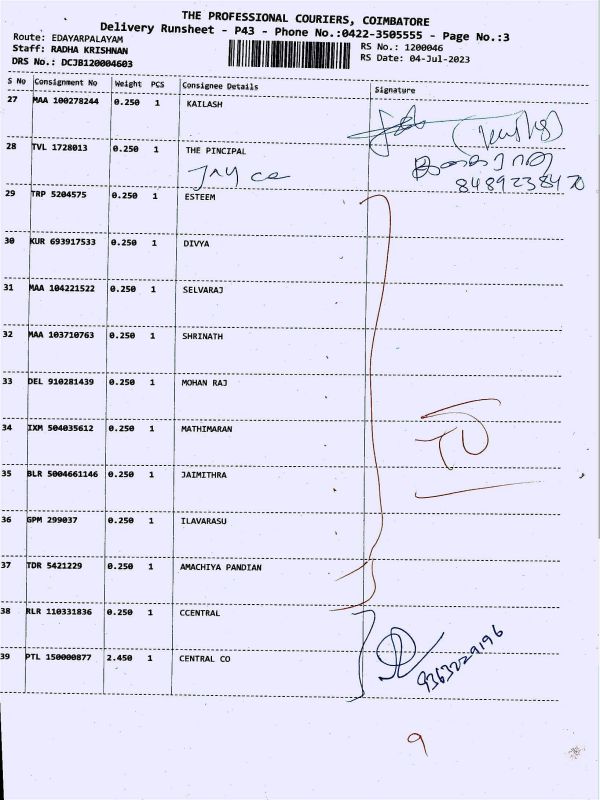 THE PROFESSIONAL COURIERS, COIMBATORE
Delivery Runsheet - P43 - Phone No.:0422-3505555 - Page No.:3
Route: EDAYARPALAYAM
RS No.: 1200046
Staff: RADHA KRISHNAN
RS Date: 04-Jul-2023
DRS No.: DCJB120004603
S No Consignment No Weight PCS Consignee Details Signature
27 MAA 100278244 0.250 1 KAILASH
28 TVL 1728013 0.250 1 THE PINCIPAL
8489238470
29 TRP 5204575 0.250 1 ESTEEM
30 KUR 693917533 0.250 1 DIVYA
31 MAA 104221522 0.250 1 SELVARAJ
32 MAA 103710763 0.250 1 SHRINATH
33 DEL 910281439 0.250 1 MOHAN RAJ
34 IXM 504035612 0.250 1 MATHIMARAN
35 BLR 5004661146 0.250 1 JAIMITHRA
36 GPM 299037 0.250 1 ILAVARASU
37 TDR 5421229 0.250 1 AMACHIYA PANDIAN
38 RLR 110331836 0.250 1 CCENTRAL
39 PTL 150000877 2.450 1 CENTRAL CO
9363229196
9